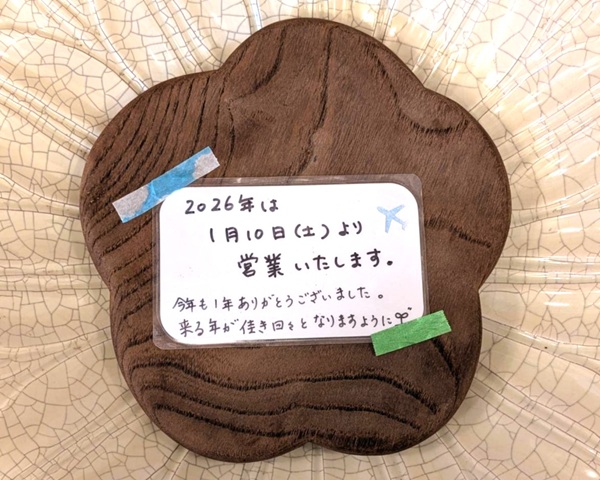 2026年は
1月10日(土)より
営業いたします。
今年も1年ありがとうございました。
来る年が佳き日々となりますように